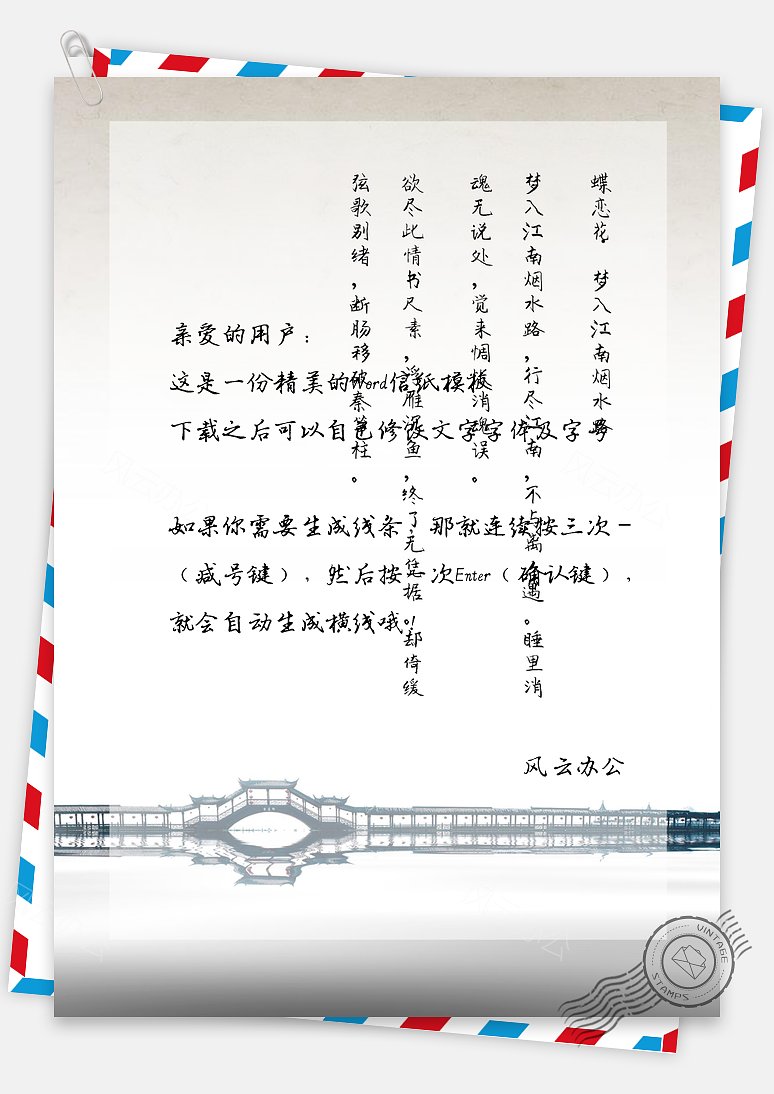 蝶恋花 梦入江南烟水路
梦入江南烟水路,行尽江南,不与离人遇。睡里消
魂无说处,觉来惆怅消魂误。
欲尽此情书尺素,浮雁沉鱼,终了无凭据。却倚缓
弦歌别绪,断肠移破秦筝柱。
亲爱的用户:
这是一份精美的Word信纸模板
下载之后可以自己修改文字字体及字号
如果你需要生成线条,那就连续按三次-
(减号键),然后按一次Enter(确认键),
就会自动生成横线哦!
风云办公
VINTAGE
STAMPS
风云办公
风云办公
风云办公
风云办公